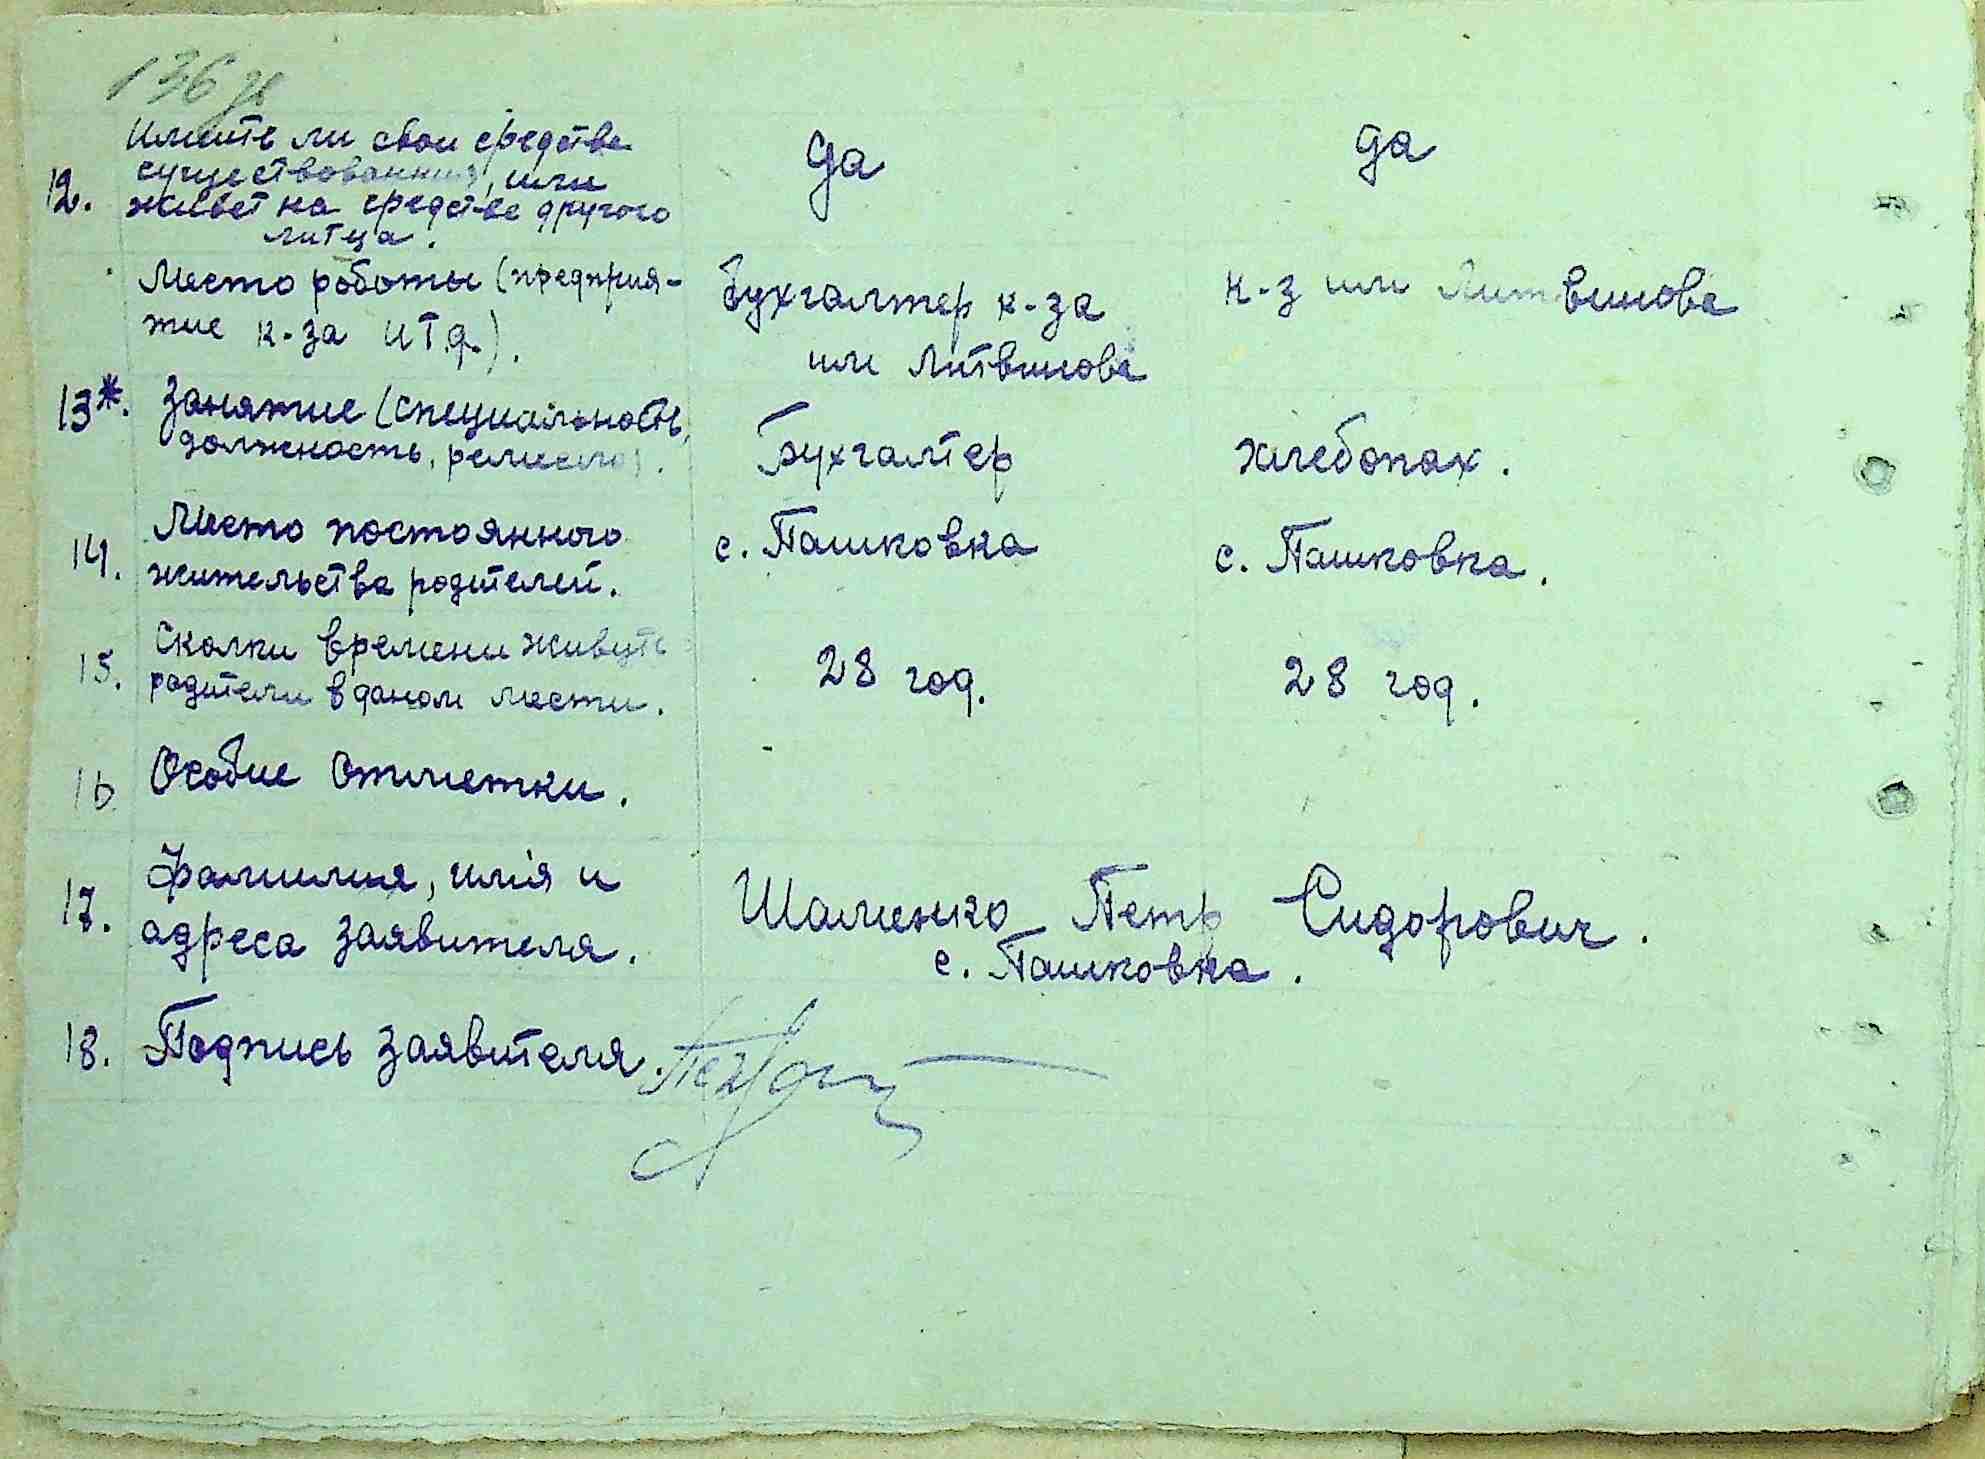 136
Имеите ли свои средства
существования, или
12. живет на средства другого
литца.
да
да
Место роботы (предприя-
тие к-за и т.д.).
Бухгалтер к-за
им Литвинова
к-з им Литвинова
13*. Занятие (специальность,
должность, ремесло).
Бухгалтер
хлебопах.
14. Место постоянного
жительства родителей.
с. Пашковка
с. Пашковка.
15. Сколки времени живуть
родители в даном мести.
28 год.
28 год.
16 Особие отметки.
17. Фамилия, имія и
адреса заявителя.
Шаменко Петр Сидорович.
с. Пашковка.
18. Подпись заявителя.